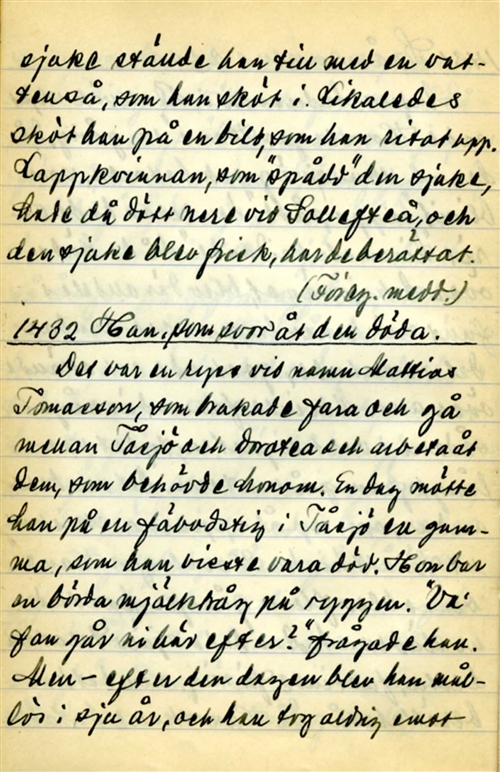 sjuke ställde han till med en vat-
tenså, som han sköt i. Likaledes
sköt han på en bild, som han ritat upp.
Lappkvinnan, som "spådd" den sjuke,
hade då dött nere vid Sollefteå, och
den sjuke blev frisk, har de berättat.
(Föreg. medd.)
1432 Han, som svor åt den döda.
Det var en ryss vid namn Mattias
Tomasson, som brukade fara och gå
mellan Tåsjö och Dorotea och arbeta åt
dem, som behövde honom. En dag mötte
han på en fäbodstig i Tåsjö en gum-
ma, som han visste vara död. Hon bar
en börda mjölktråg på ryggen. "Va'
fan går ni här efter?" frågade han.
Men - efter den dagen blev han mål-
lös i sju år, och han tog aldrig emot